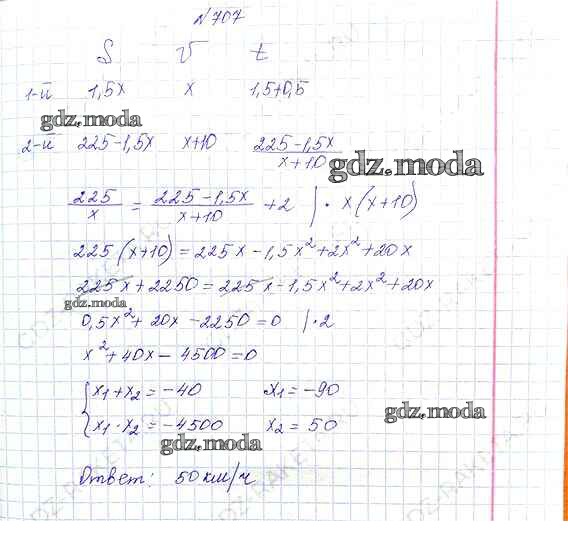 №707
S V t
1-й 1,5x x 1,5+0,5
gdz.moda
2-й 225-1,5x x+10 (225-1,5x)/(x+10)
gdz.moda
225/x = (225-1,5x)/(x+10) +2 | · x(x+10)
225(x+10)=225x-1,5x²+2x²+20x
225x+2250=225x-1,5x²+2x²+20x
gdz.moda
0,5x²+20x-2250=0 |·2
x²+40x-4500=0
{x₁+x₂=-40 x₁=-90
gdz.moda
{x₁·x₂=-4500 x₂=50
gdz.moda
Ответ: 50км/ч